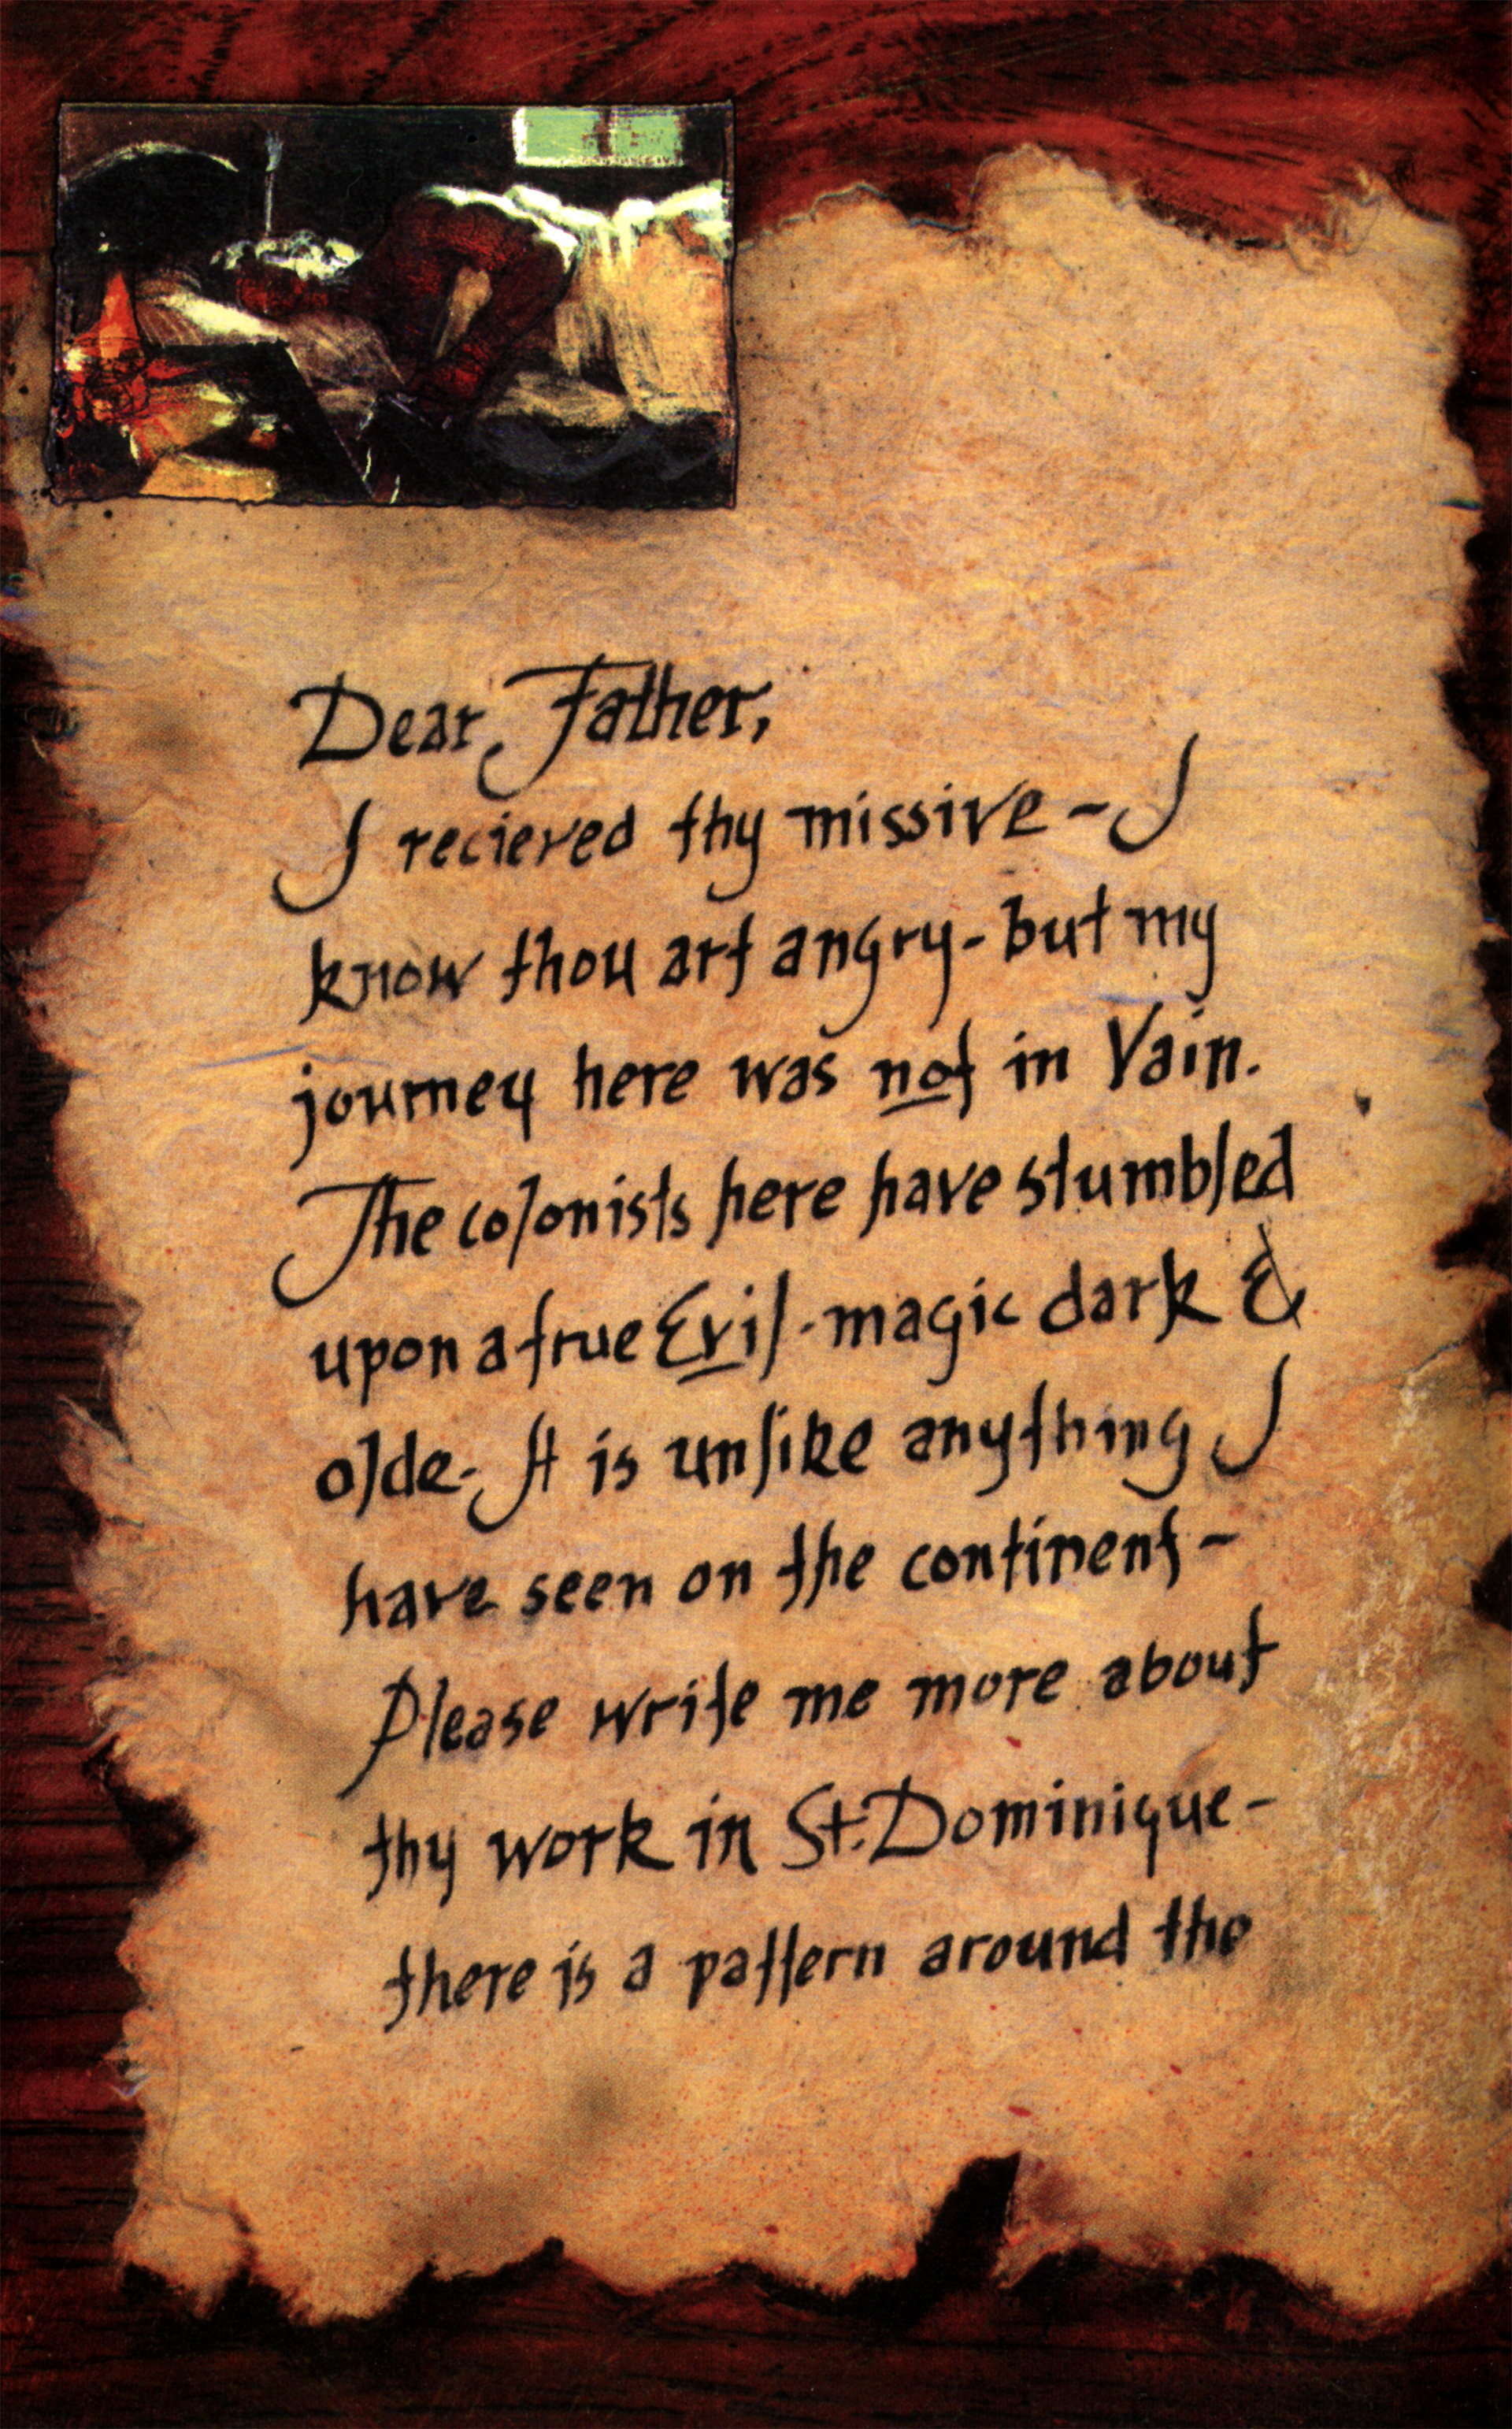 Dear Father,
I recieved thy missive - I
know thou art angry - but my
journey here was not in Vain.
The colonists here have stumbled
upon a true Evil - magic dark &
olde. It is unlike anything I
have seen on the continent -
Please write me more about
thy work in St. Dominique -
there is a pattern around the